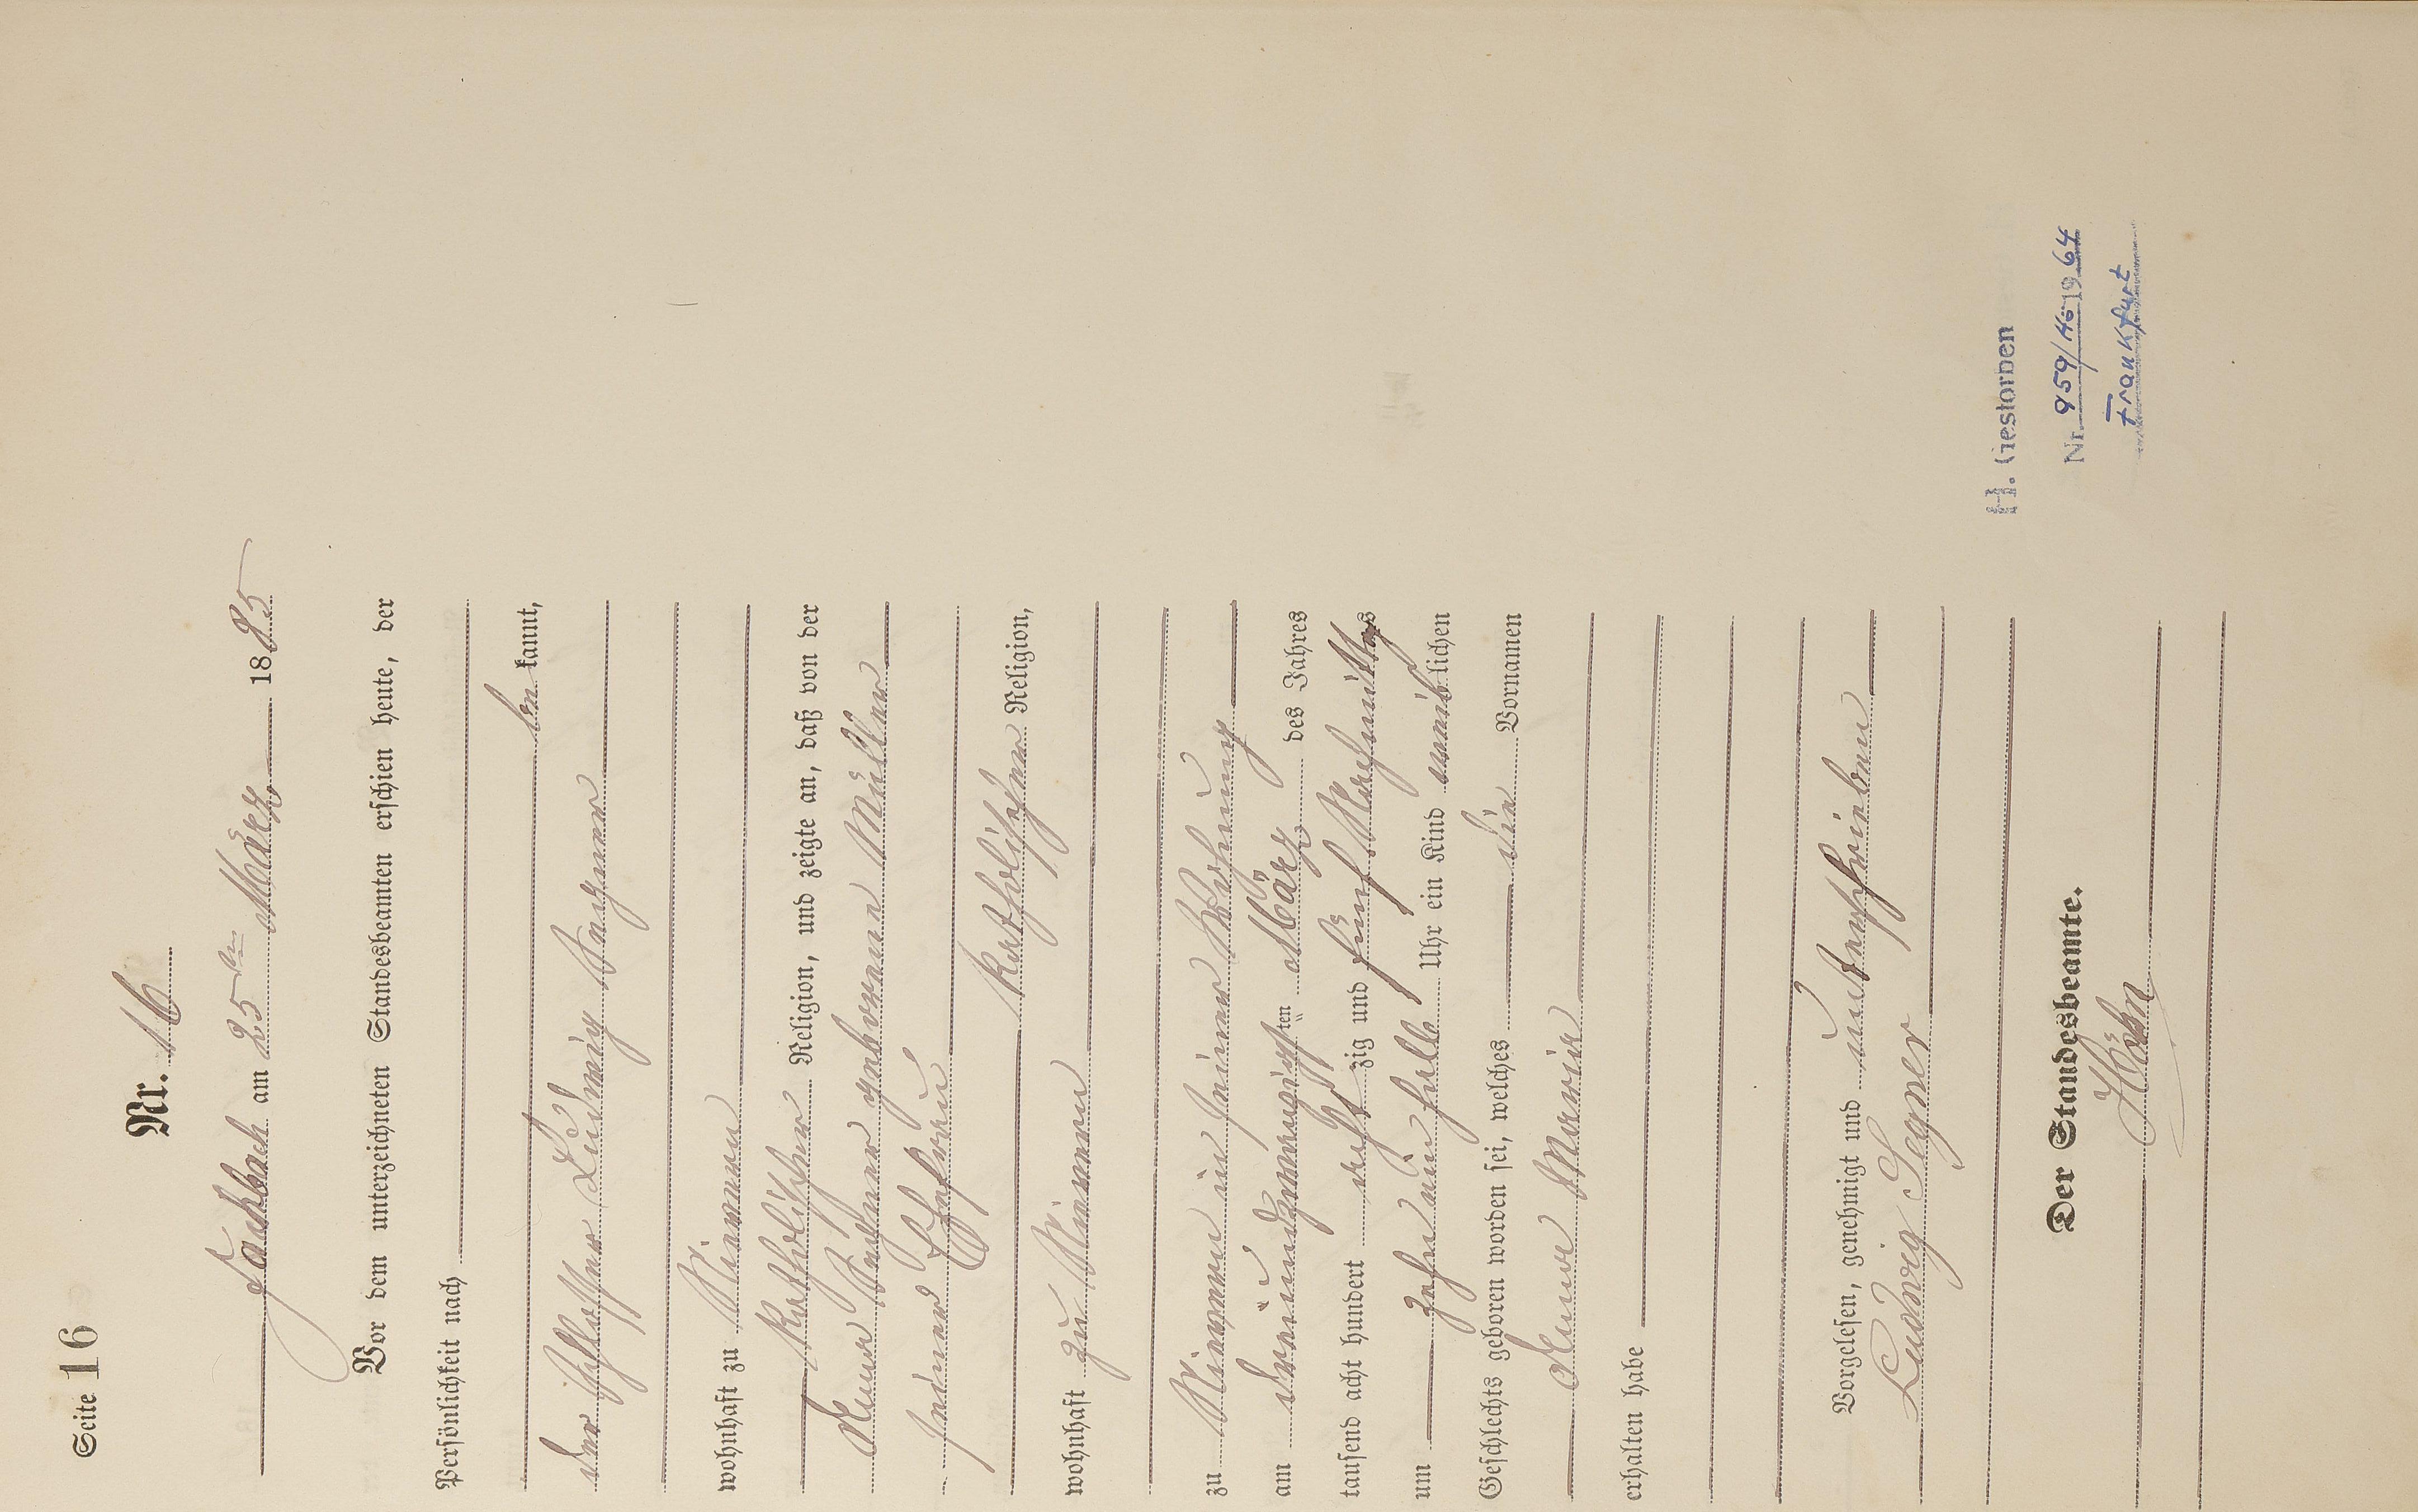 Seite 16
Nr. 16
Fachbach am 25ten März 1885
Vor dem unterzeichneten Standesbeamten erschien heute, der
Persönlichkeit nach
be kannt,
der Schlosser Ludwig Segner
wohnhaft zu Nievern
katholischer Religion, und zeigte an, daß von der
Anna Segner geborenen Müller
seiner Ehefrau
katholischer Religion,
wohnhaft zu Nievern
zu Nievern in seiner Wohnung
am dreiundzwanzigsten März des Jahres
tausend acht hundert acht zig und fünf Nachmittags
um zehn ein halb Uhr ein Kind weiblichen
Geschlechts geboren worden sei, welches die Vornamen
Anna Maria
erhalten habe
Vorgelesen, genehmigt und unterschrieben
Ludwig Segner
Der Standesbeamte.
Höhn
H. Gestorben
Nr. 959/Hö 1964
Frankfurt